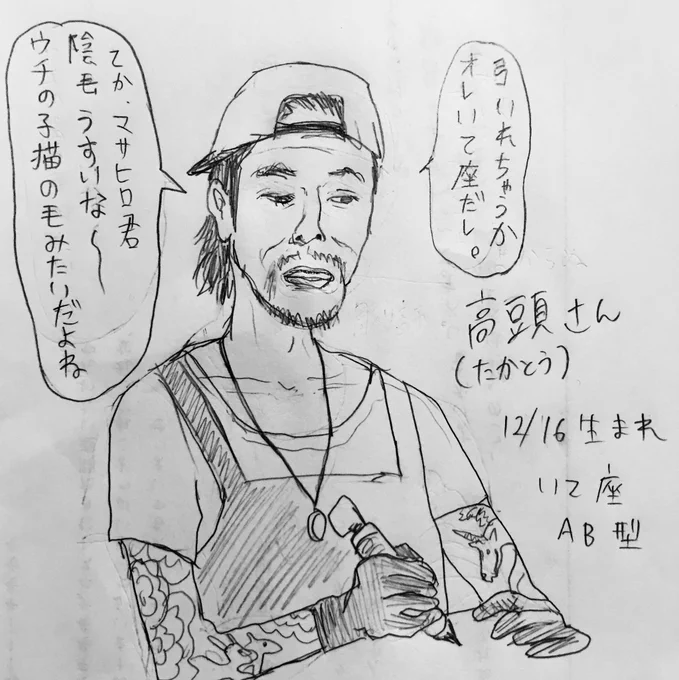 弓いれちゃうか
オレいて座だし。
てか、マサヒロ君
陰毛うすいな〜
ウチの子猫の毛みたいだよね
高頭さん
(たかとう)
12/16生まれ
いて座
AB型